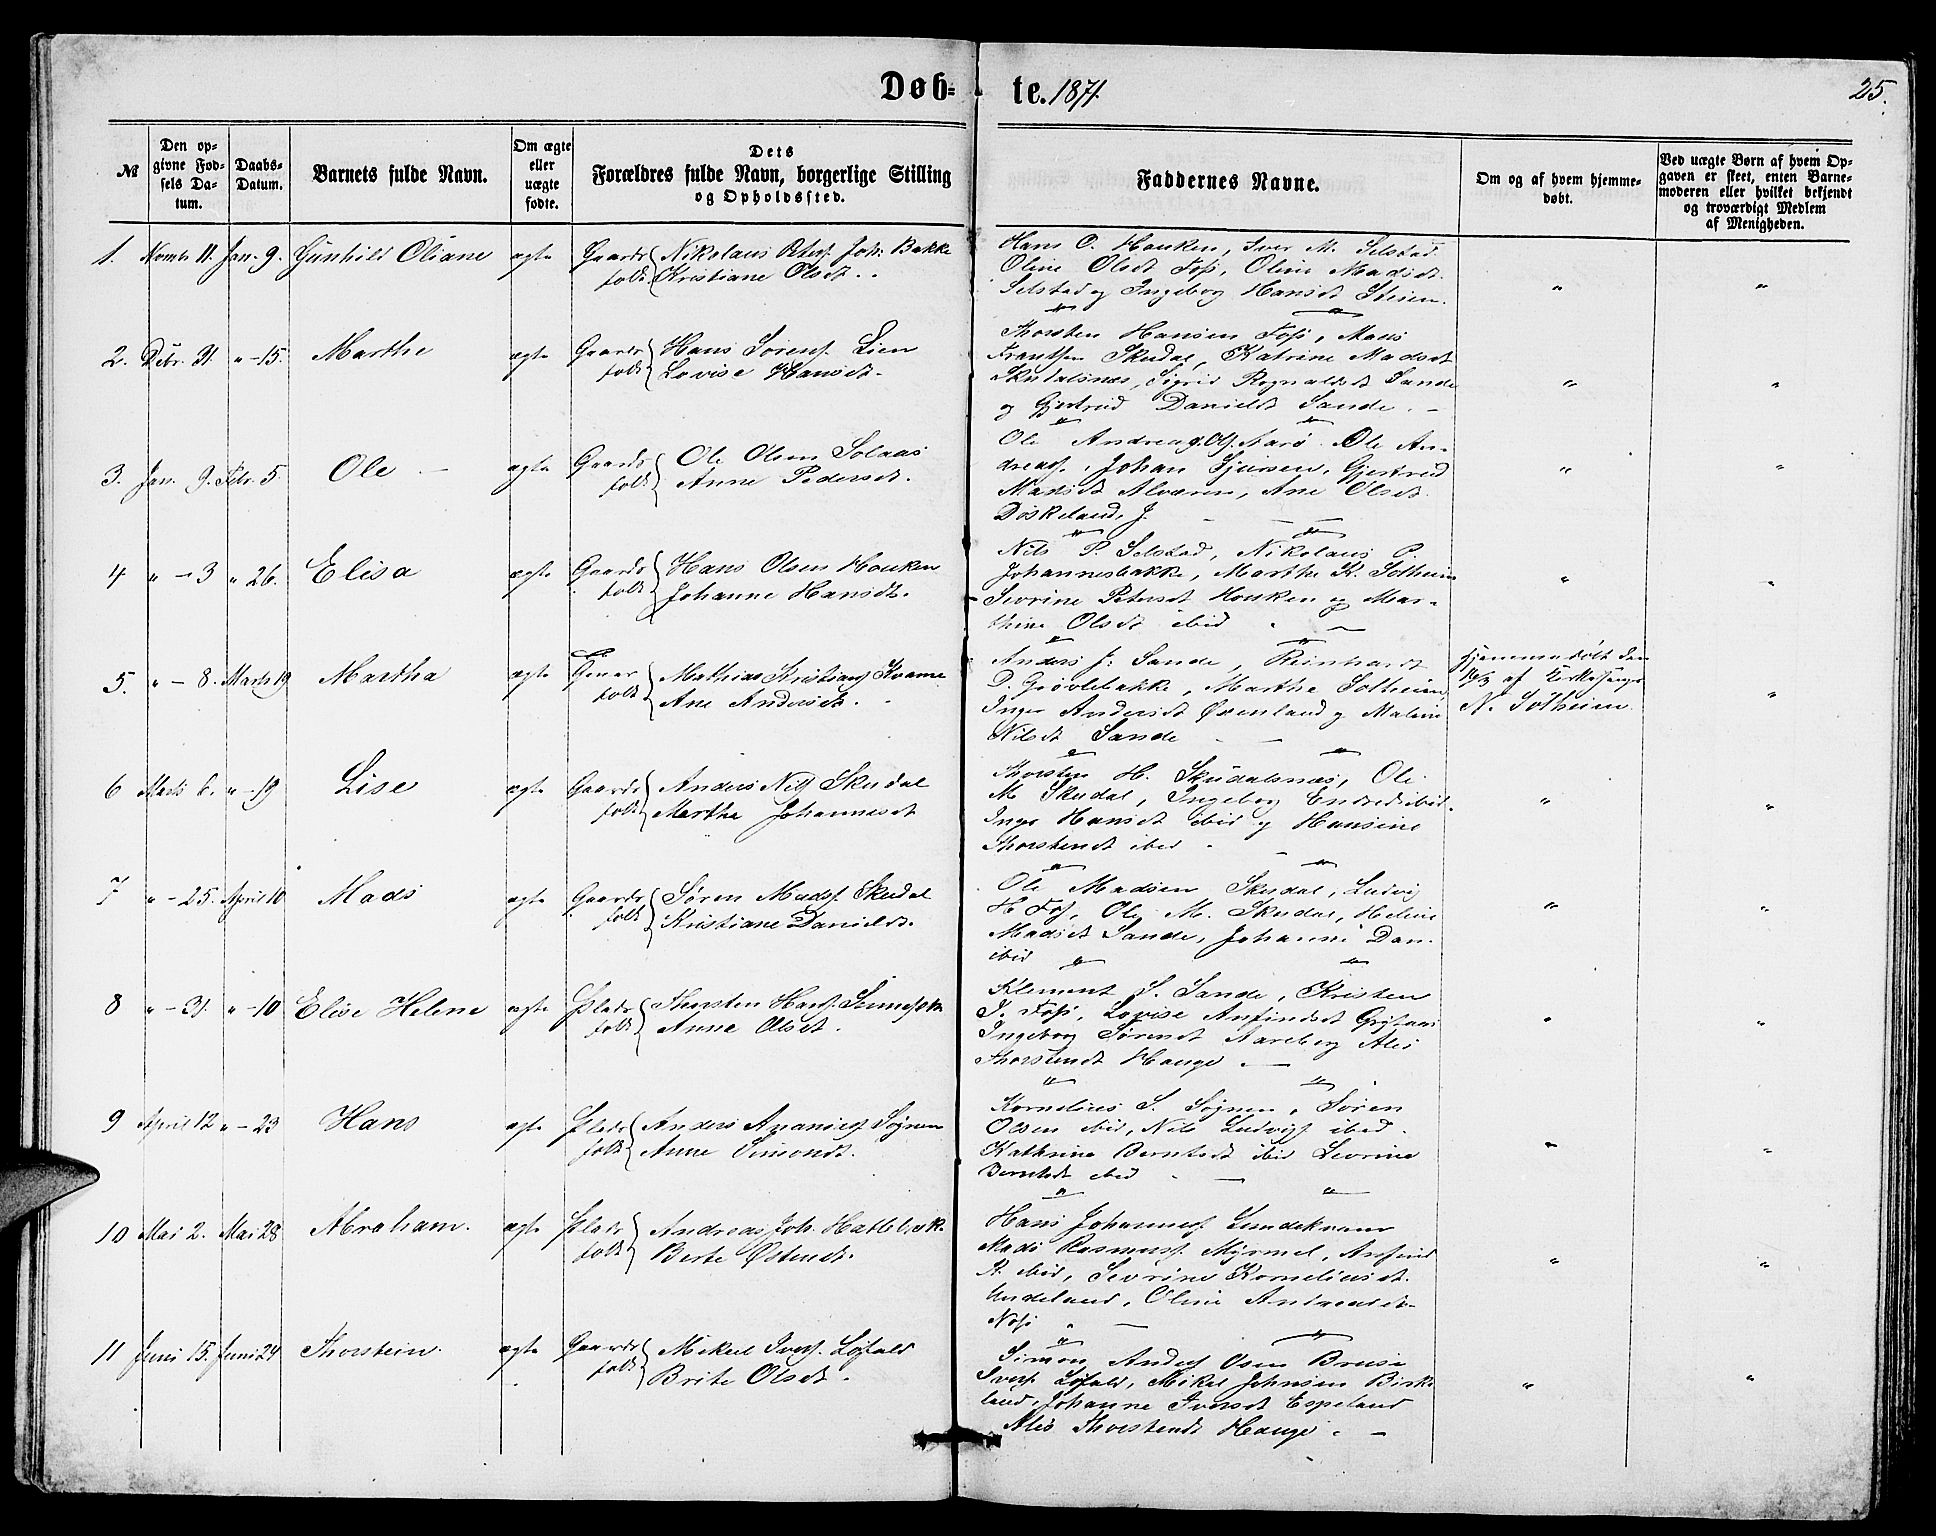 Døb- te. 1871. 25.
№
Den op-
givne Fød-
sels Da-
tum.
Daabs-
Datum.
Barnets fulde Navn.
Om ægte
eller
uægte
fødte.
Dets
Forældres fulde Navn, borgerlige Stilling
og Opholdssted.
Faddernes Navne.
Om og af hvem hjemme-
døbt.
Ved uægte Børn af hvem Op-
gaven er skeet, enten Barne-
moderen eller hvilket bekjendt
og troværdigt Medlem
af Menigheden.
1. Novmb 11. Jan. 9. Gunhild Oliane ægte Gaards Nikolaus Peters. Joh: Bakke
folk Kristiane Olsdt. "
Hans O. Houken, Iver M. Selstad
Oline Olsdt Foss, Oline Madsdt.
Selstad og Ingeborg Hansdt Steien " "
2. Debr. 31. " – 15. Marthe ægte Gaards Hans Sørens. Lien
folk Lovise Hansdt.
Thorsten Hansen Foss, Mads
Frantsen Skudal, Katrine Madsdt
Skudalsnes, Sigrid Rognaldsdt Sande
og Gjertrud Danielsdt Sande. – " "
3. Jan. 9. Febr. 5. Ole – ægte Gaards Ole Olsen Solaas
folk Anne Pedersdt.
Ole Andreas Ols. Ole An-
dreass. Johan Sjursen, Gjertrud
Madsdt Alværen, Ane Olsdt
Døskeland. " "
4 " – 3 " 26. Elisa ægte Gaards Hans Olsen Houken
folk Johanne Hansdt.
Nils P. Selstad, Nikolaus P.
Johannesbakke, Marthe K. Solheim
Sevrine Petersdt Houken og Mar-
thine Olsdt ibid " "
5. " – 8. Marts 19 Martha ægte Gaar
folk Mathias Kristians. Kvame
Ane Andersdt.
Anders J. Sande, Reinhardt
D. Grøvlebakke, Marthe Solheim,
Inger Andersdt Øxenland og Malene
Nilsdt Sande
Hjemmedøbt den
af Kirkesanger
N. Solheim. "
6 Marts 6. " – 19 Lise ægte Gaards Anders Nils. Skudal
folk Marthe Johannesdt
Thorsten H. Skudalsnes, Ole
M. Skudal, Ingeborg Endredt ibid.
Inger Hansdt ibid og Hansine
Thorstendt ibid. " "
7 " – 25. April 10 Mads ægte Gaards Søren Mads. Skudal
folk Kristiane Danielsdt.
Ole Madsen Skudal, Ludvig
H. Foss, Ole M. Skudal, Heline
Madsdt Sande, Johanne Dan.
ibid " "
8 " – 31. " – 10 Elise Helene ægte Plads Thorsten Hans.
folk Anne Olsdt.
Klement S. Sande, Kristen
J. Foss, Lovise Anfindsdt
Ingeborg Sørensdt Aareberg Ales
Thorstendt Hauge. – " "
9 April 12 " – 23 Hans ægte Plads Anders Ananiass. Søgnen
folk Anne Simondt.
Kornelius S. Søgnen, Søren
Olsen ibid, Nils Ludvigs. ibid.
Kathrine Berntsdt ibid Sevrine
Berntsdt ibid " "
10 Mai 2. Mai 28 Abraham. ægte Plads Andreas Joh. Hatlebrek.
folk Berte Østensdt.
Hans Johanness. Sundekvam
Mads Rasmuss. Myrmel, Anfind
R. ibid, Sevrine Korneliusdt.
Undeland, Oline Andreasdt
" "
11 Juni 15. Juni 24 Thorstein. ægte Gaards Mikael Ivers. Løfald
folk Brite Olsdt.
Simon Anders. Osen
Ivers. Løfald, Mikal Johnsen Birke
land, Johanne Iversdt Espeland
Ales Thorstendt Hauge. – " "